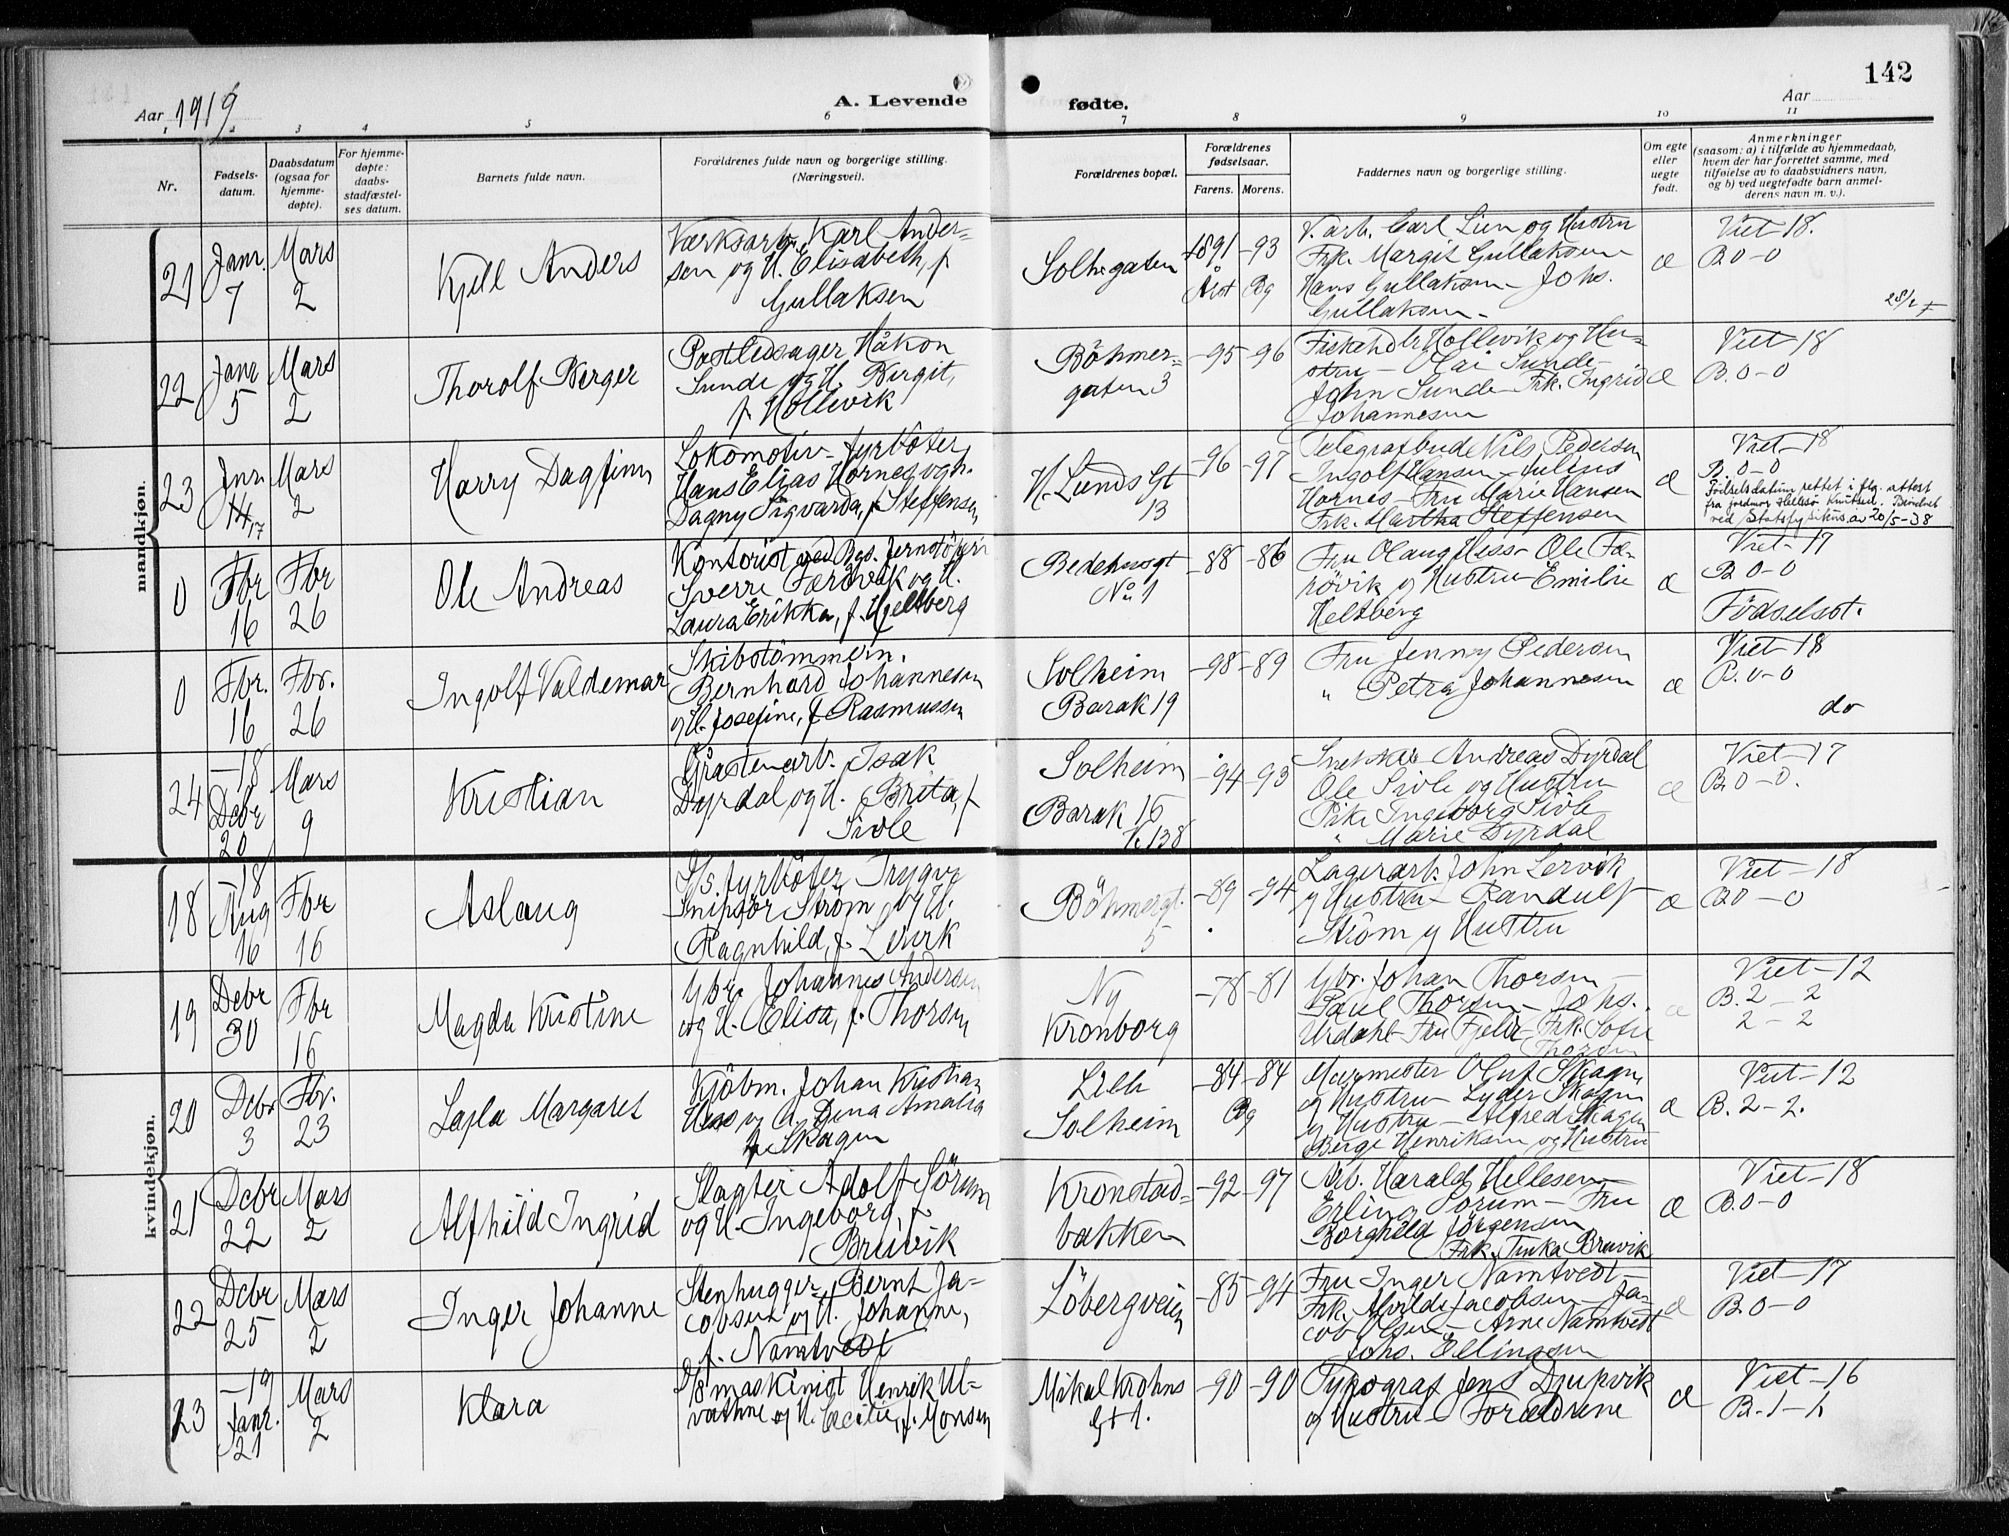 142
Aar 1919
A. Levende
fødte.
Aar
1 2 3 4 5 6 7 8 9 10 11
Nr.
Fødsels-
datum.
Daabsdatum
(ogsaa for
hjemme-
døpte).
For hjemme-
døpte:
daabs-
stadfæstel-
ses datum.
Barnets fulde navn.
Forældrenes fulde navn og borgerlige stilling.
(Næringsvei).
Forældrenes bopæl.
Forældrenes
fødselsaar.
Farens. Morens.
Faddernes navn og borgerlige stilling.
Om egte
eller
uegte
født.
Anmerkninger
(saasom: a) i tilfælde av hjemmedaab,
hvem der har forrettet samme, med
tilføielse av to daabsvidners navn,
og b) ved uegtefødte barn anmel-
derens navn m. v.).
mandkjøn.
21
Janr.
7
Mars
2
Kjell Anders
Værksarb. Karl Ander=
sen og H. Elisabeth, f
Gullaksen
Solh.gaten
1891 -93
Årst Bg
V. arb. Carl Lien og Hustru
Frk. Margit Gullaksen
Hans Gullaksen - Johs.
Gullaksen -
æ
Viet -18.
B 0-0
22
Janr
5
Mars
2
Thorolf Berger
Postledsager Håkon
Sunde og H. Birgit,
f. Hollevik
Böhmer=
gaten 3
-95 -96
Fiskehdlr Hollevik og Hu=
stru - Olai Sunde
John Sunde Frk. Ingrid
Johannesen
æ
Viet 18
B. 0-0
23
Jnr
14/17
Mars
2
Harry Dagfinn
Lokomotiv-fyrböter
Hans Elias Hornes og H.
Dagny Sigvarda, f. Steffensen
H. Lunds Gt
13
-96 -97
Telegrafbud Nils Pedersen
Ingolf Hansen - Julius
Hornes - Fru Marie Hansen
Frk. Martha Steffensen
æ
Viet -18
B. 0-0
Födselsdatum rettet i flg. attest
fra jordmor Knutsen.
ved Statsfysikus av 20/5-38
0
Fbr
16
Fbr
26
Ole Andreas
Kontorist ved Bgs. Jernstöperi
Sverre Færövik og H.
Laura Erikka, f. Hjeltberg
Bedehusgt
No 1
-88 -86
Fru Olaug Hess - Ole Fæ-
rövik og Hustru Emilie
Heltberg
æ
Viet -17
B 0-0
Födselsat.
0
Fbr.
16
Fbr.
26
Ingolf Valdemar
Skibstömmerm.
Bernhard Johannesen
og H. Josefine, f. Rasmussen
Solheim
Barak 19
-98 -89
Fru Jenny Pedersen
" Petra Johannesen
æ
Viet -18
B. 0-0
do
24
-18
Debr
20
Mars
9
Kristian
Gråstenarb. Isak
Dyrdal og H. Brita, f
Sivle
Solheim
Barak 16
V. 138
-94 -93
Snekker Andreas Dyrdal
Ole Sivle og Hustru
Pike Ingeborg Sivle
" Marie Dyrdal
æ
Viet -17
B 0-0.
kvindekjøn.
18
-18
Aug
16
Fbr
16
Aslaug
S/s. fyrböter Trygve
Ström og H.
Ragnhild, f. Lervik
Böhmergt.
5
-89 -94
Lagerarb. John Lervik
og Hustru - Randulf
Ström og Hustru
æ
Viet -18
B 0-0
19
Debr
30
Fbr
16
Magda Kristine
Johannes Andersen
og H. Elisa, f. Thorsen
Ny
Kronborg
-78 -81
Johan Thorsen -
Paul Thorsen - Johs.
Urdahl - Fru Fjeld - Frk. Sofie
Thorsen
æ
Viet -12
B. 2-2
2-2
20
Debr
3
Fbr.
23
Lajla Margaret
Kjöbm. Johan Kristian
Hess og H. Dina Amalia
f. Skagen
Lille
Solheim
-84 -84
Bg
Murmester Oluf Skagen
og Hustru - Lyder Skagen
og Hustru - Alfred Skagen
Berge Henriksen og Hustru
æ
Viet -12
B. 2-2.
21
Debr
22
Mars
2
Alfhild Ingrid
Slagter Adolf Sörum
og H. Ingeborg, f.
Bruvik
Kronstad=
bakken
-92 -97
Arb. Harald Hellesen
Erling Sorum - Fru
Borghild Jörgensen
Frk. Tinka Bruvik
æ
Viet -18
B. 0-0
22
Debr
25
Mars
2
Inger Johanne
Stenhugger Bernt Ja-
cobsen og H. Johanne,
f. Namtvedt
Löbergveien
-85 -94
Fru Inger Namtvedt
Frk. Alvilde Jacobsen - Ja-
cob Olsen - Arne Namtvedt
Johs. Ellingsen
æ
Viet -17
B. 0-0
23
-19
Janr.
21
Mars
2
Klara
D/s maskinist Henrik Ul-
vathne og H. Cæcilie, f. Monsen
Mikal Krohns
Gt 1.
-90 -90
Typograf Jens Djupvik
og Hustru - Forældrene
æ
Viet -16
B. 1-1